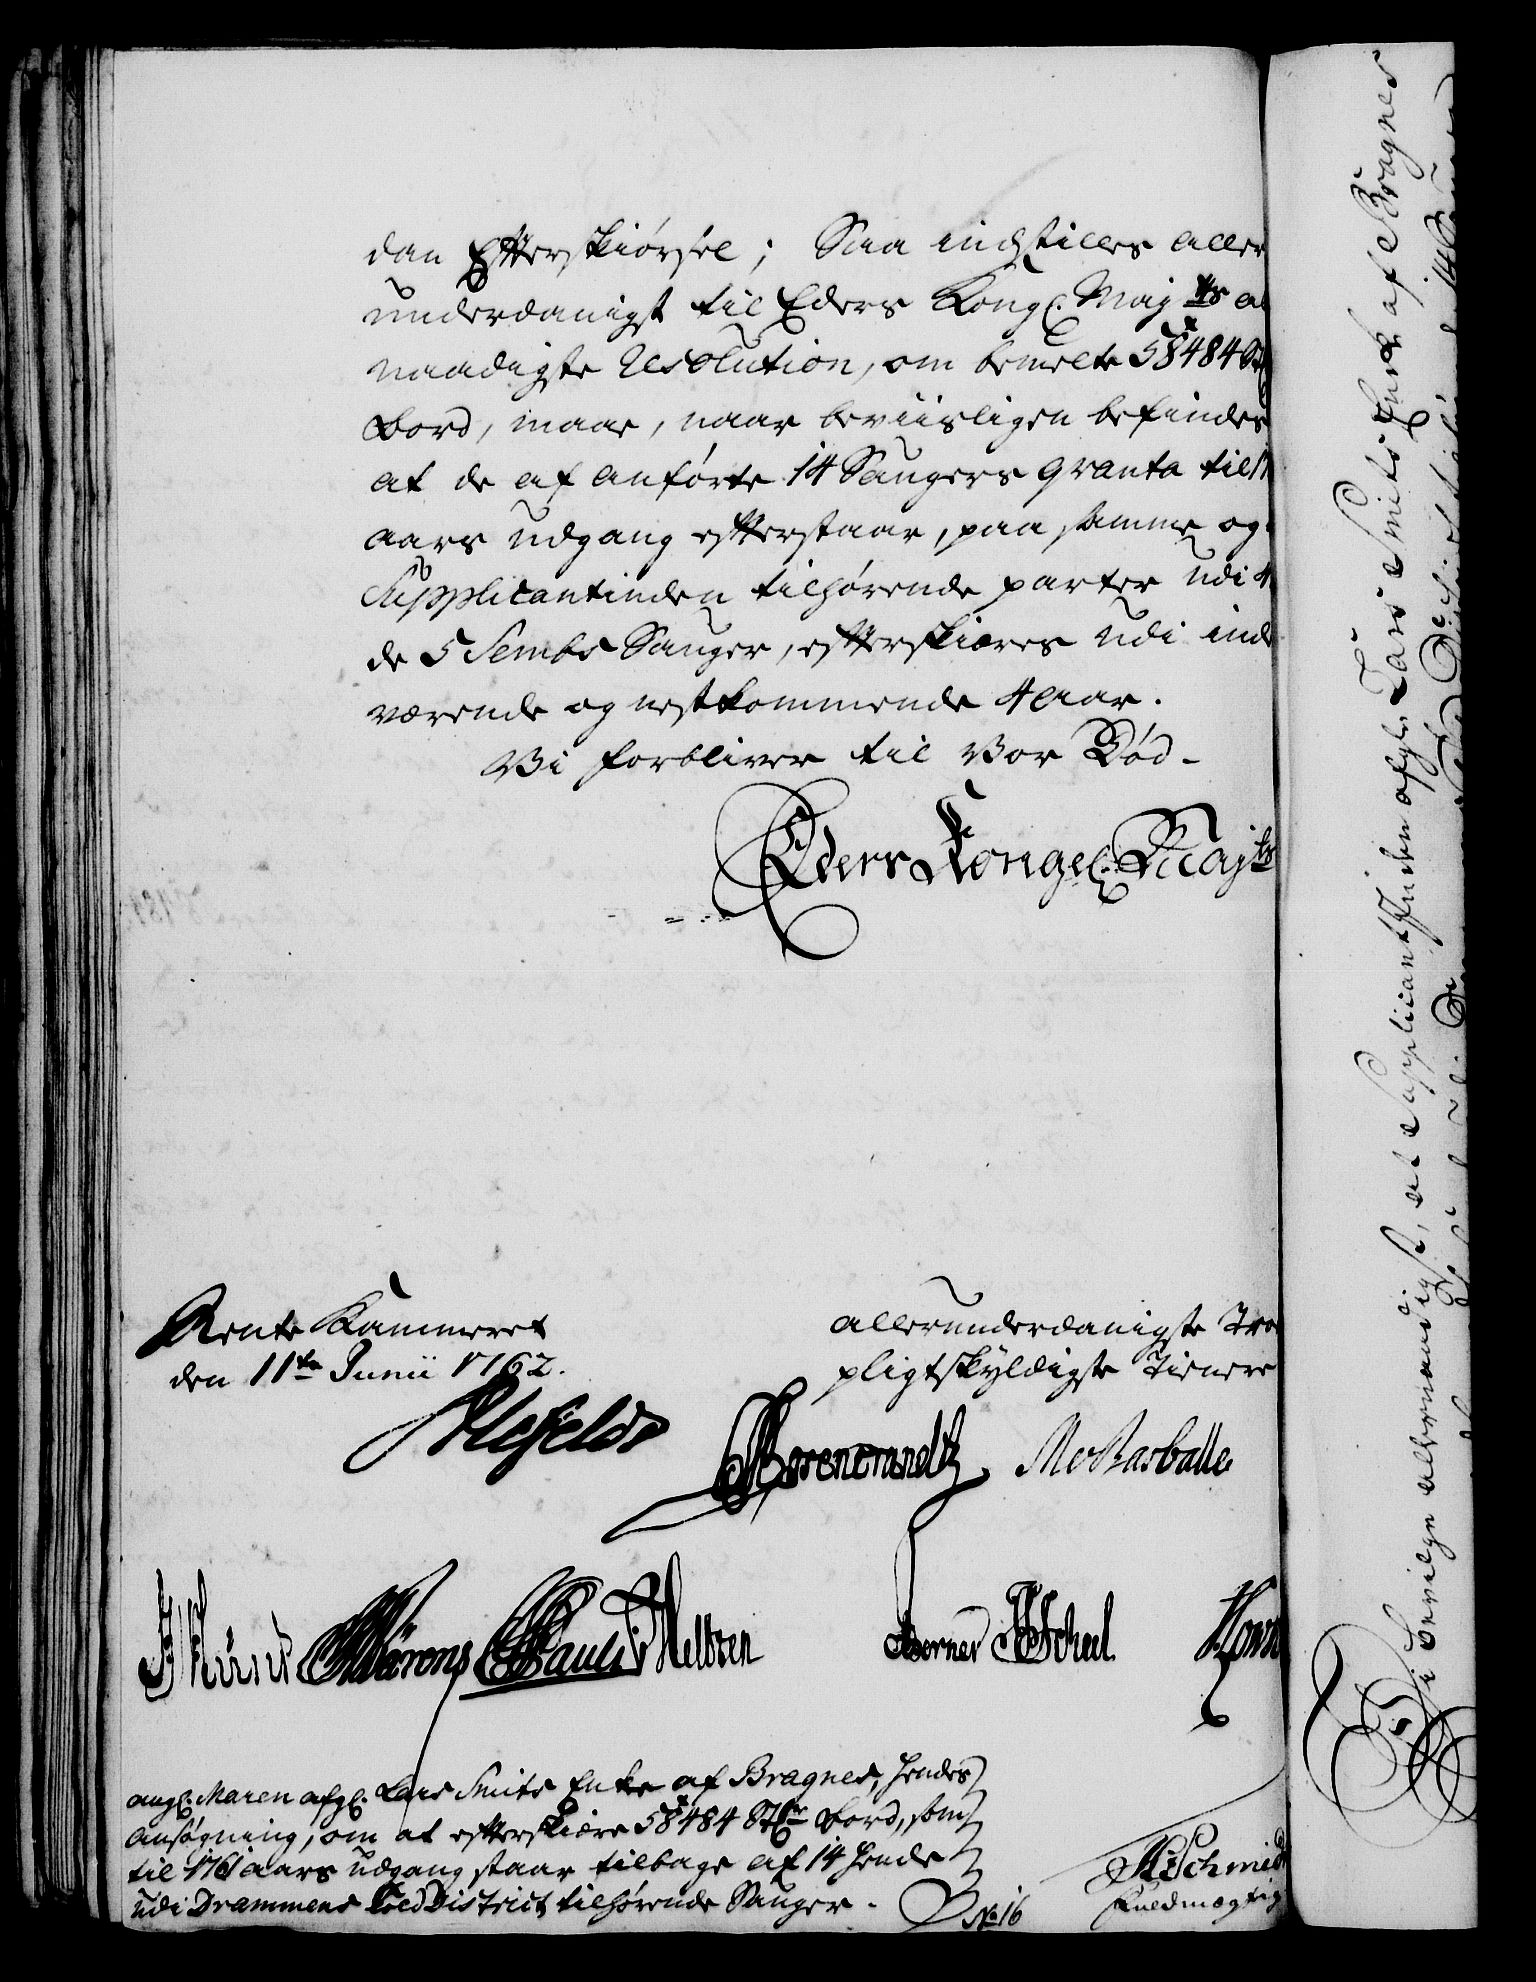 dan Efterskiørsel; Saa indstilles aller
underdanigst til Eders Kongl. Maj ts al
naadigste Resolution, om bemelte 58484 St
Bord, maae, naar beviisligen befindes
at de af anførte 14 Saugers qvanta til
aars udgang efterstaar, paa samme og
Supplicantinden tilhørende parter udi
de 5 Sembs Sauger, efterskiæres udi inde
værende og nestkommende 4 Aar.
Vi forbliver til Vor Død-
Eders Kongel. Maj ts
Rente Kammeret
den 11te Junii 1762.
allerunderdanigste Tro
pligtskyldigste Tienere
Ahlefeldt
Rosencrandtz
Barballe
Pauli Meltzen
Berner Scheel
angl. Maren afgl. Lars Smits Enke af Bragnes, hendes
ansøgning, om at efterskiære 58484 St. Bord, som
til 1761 aars udgang staar tilbage af 14 hende
udi Drammens Told District tilhørende Sauger.
No 16
Schmidt
Fuldmægtig
Vi bevilge allernaadigst, at Supplicantinden afgl. Lars Smits Enke af Bragnes